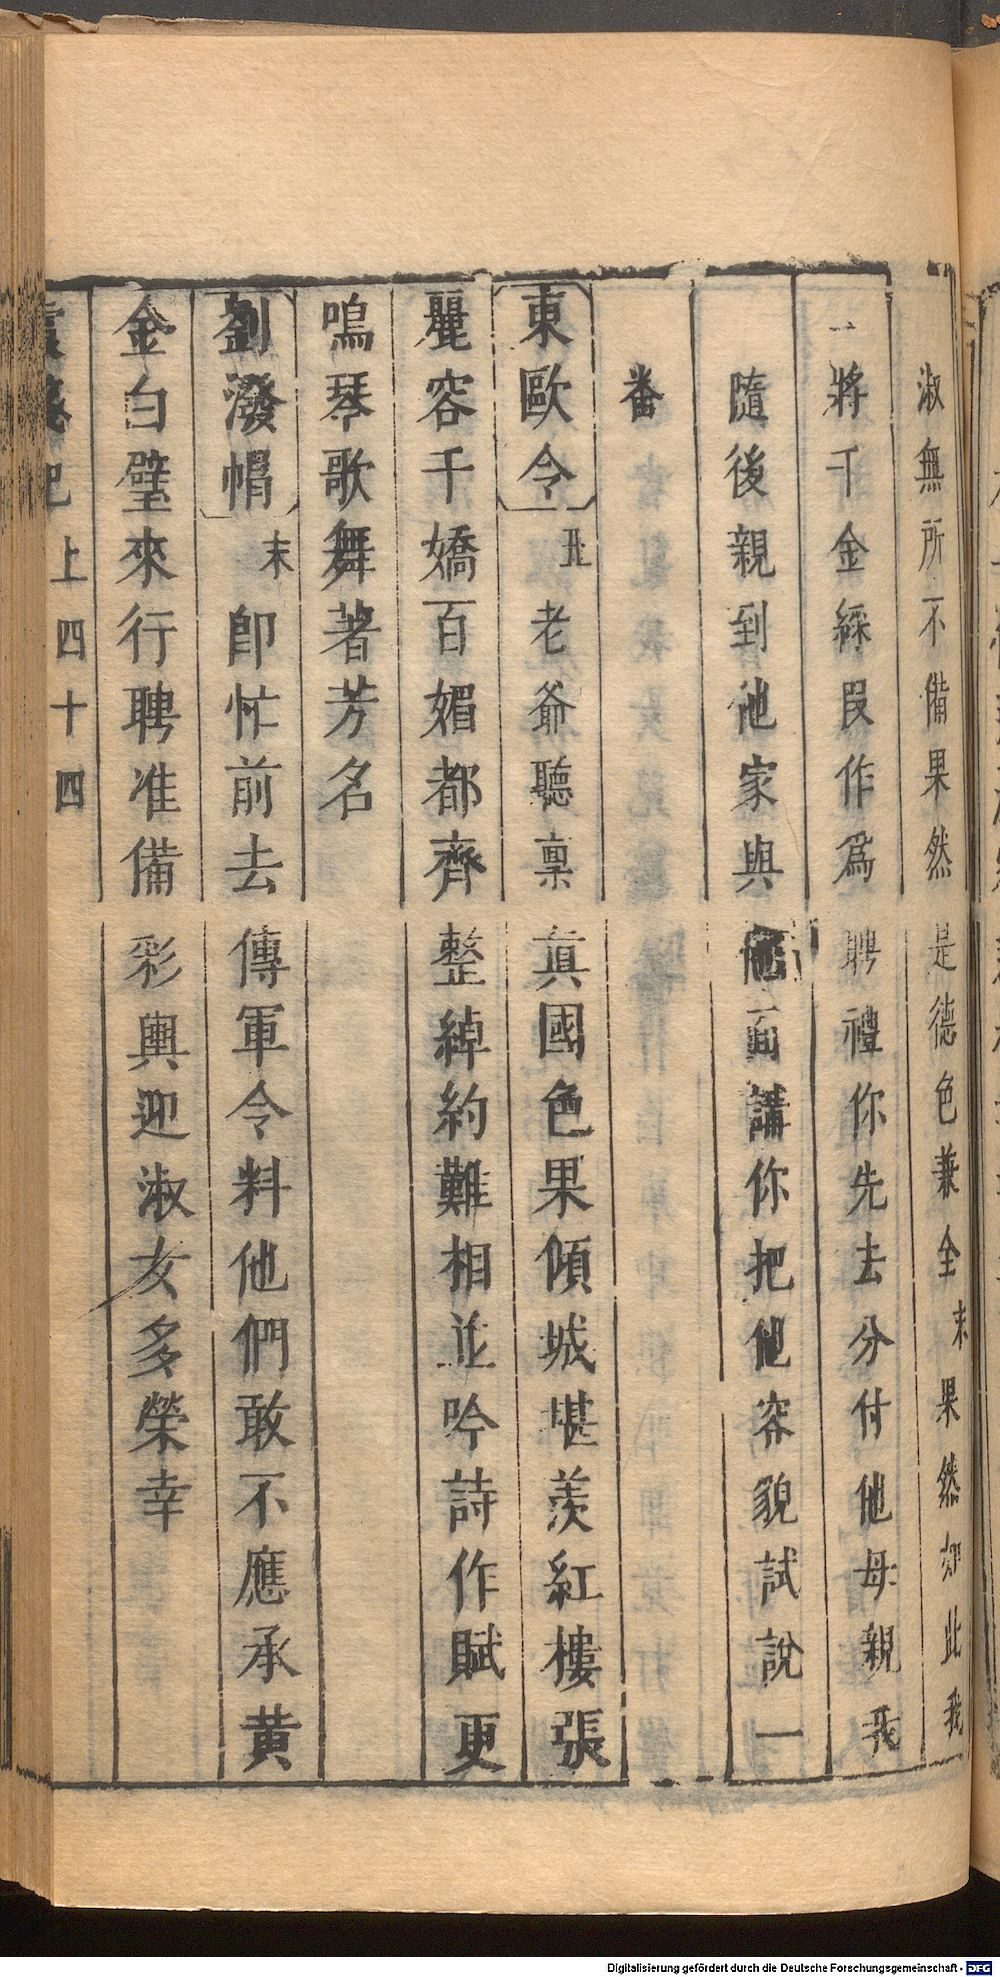 淑無所不備果然是德色兼全末果然如此我
將千金綵叚作爲聘禮你先去分付他母親我
隨後親到他家與他面講你把他容貌試說一
番
東歐令丑老爺聽稟真國色果傾城堪羡紅樓張
麗容千嬌百媚都齊整綽約難相並吟詩作賦更
鳴琴歌舞著芳名
劉潑帽末卽忙前去傳軍令料他們敢不應承黄
金白璧來行聘准備彩輿迎淑女多榮幸
記上四十四
Digitalisierung gefördert durch die Deutsche Forschungsgemeinschaft - DFG